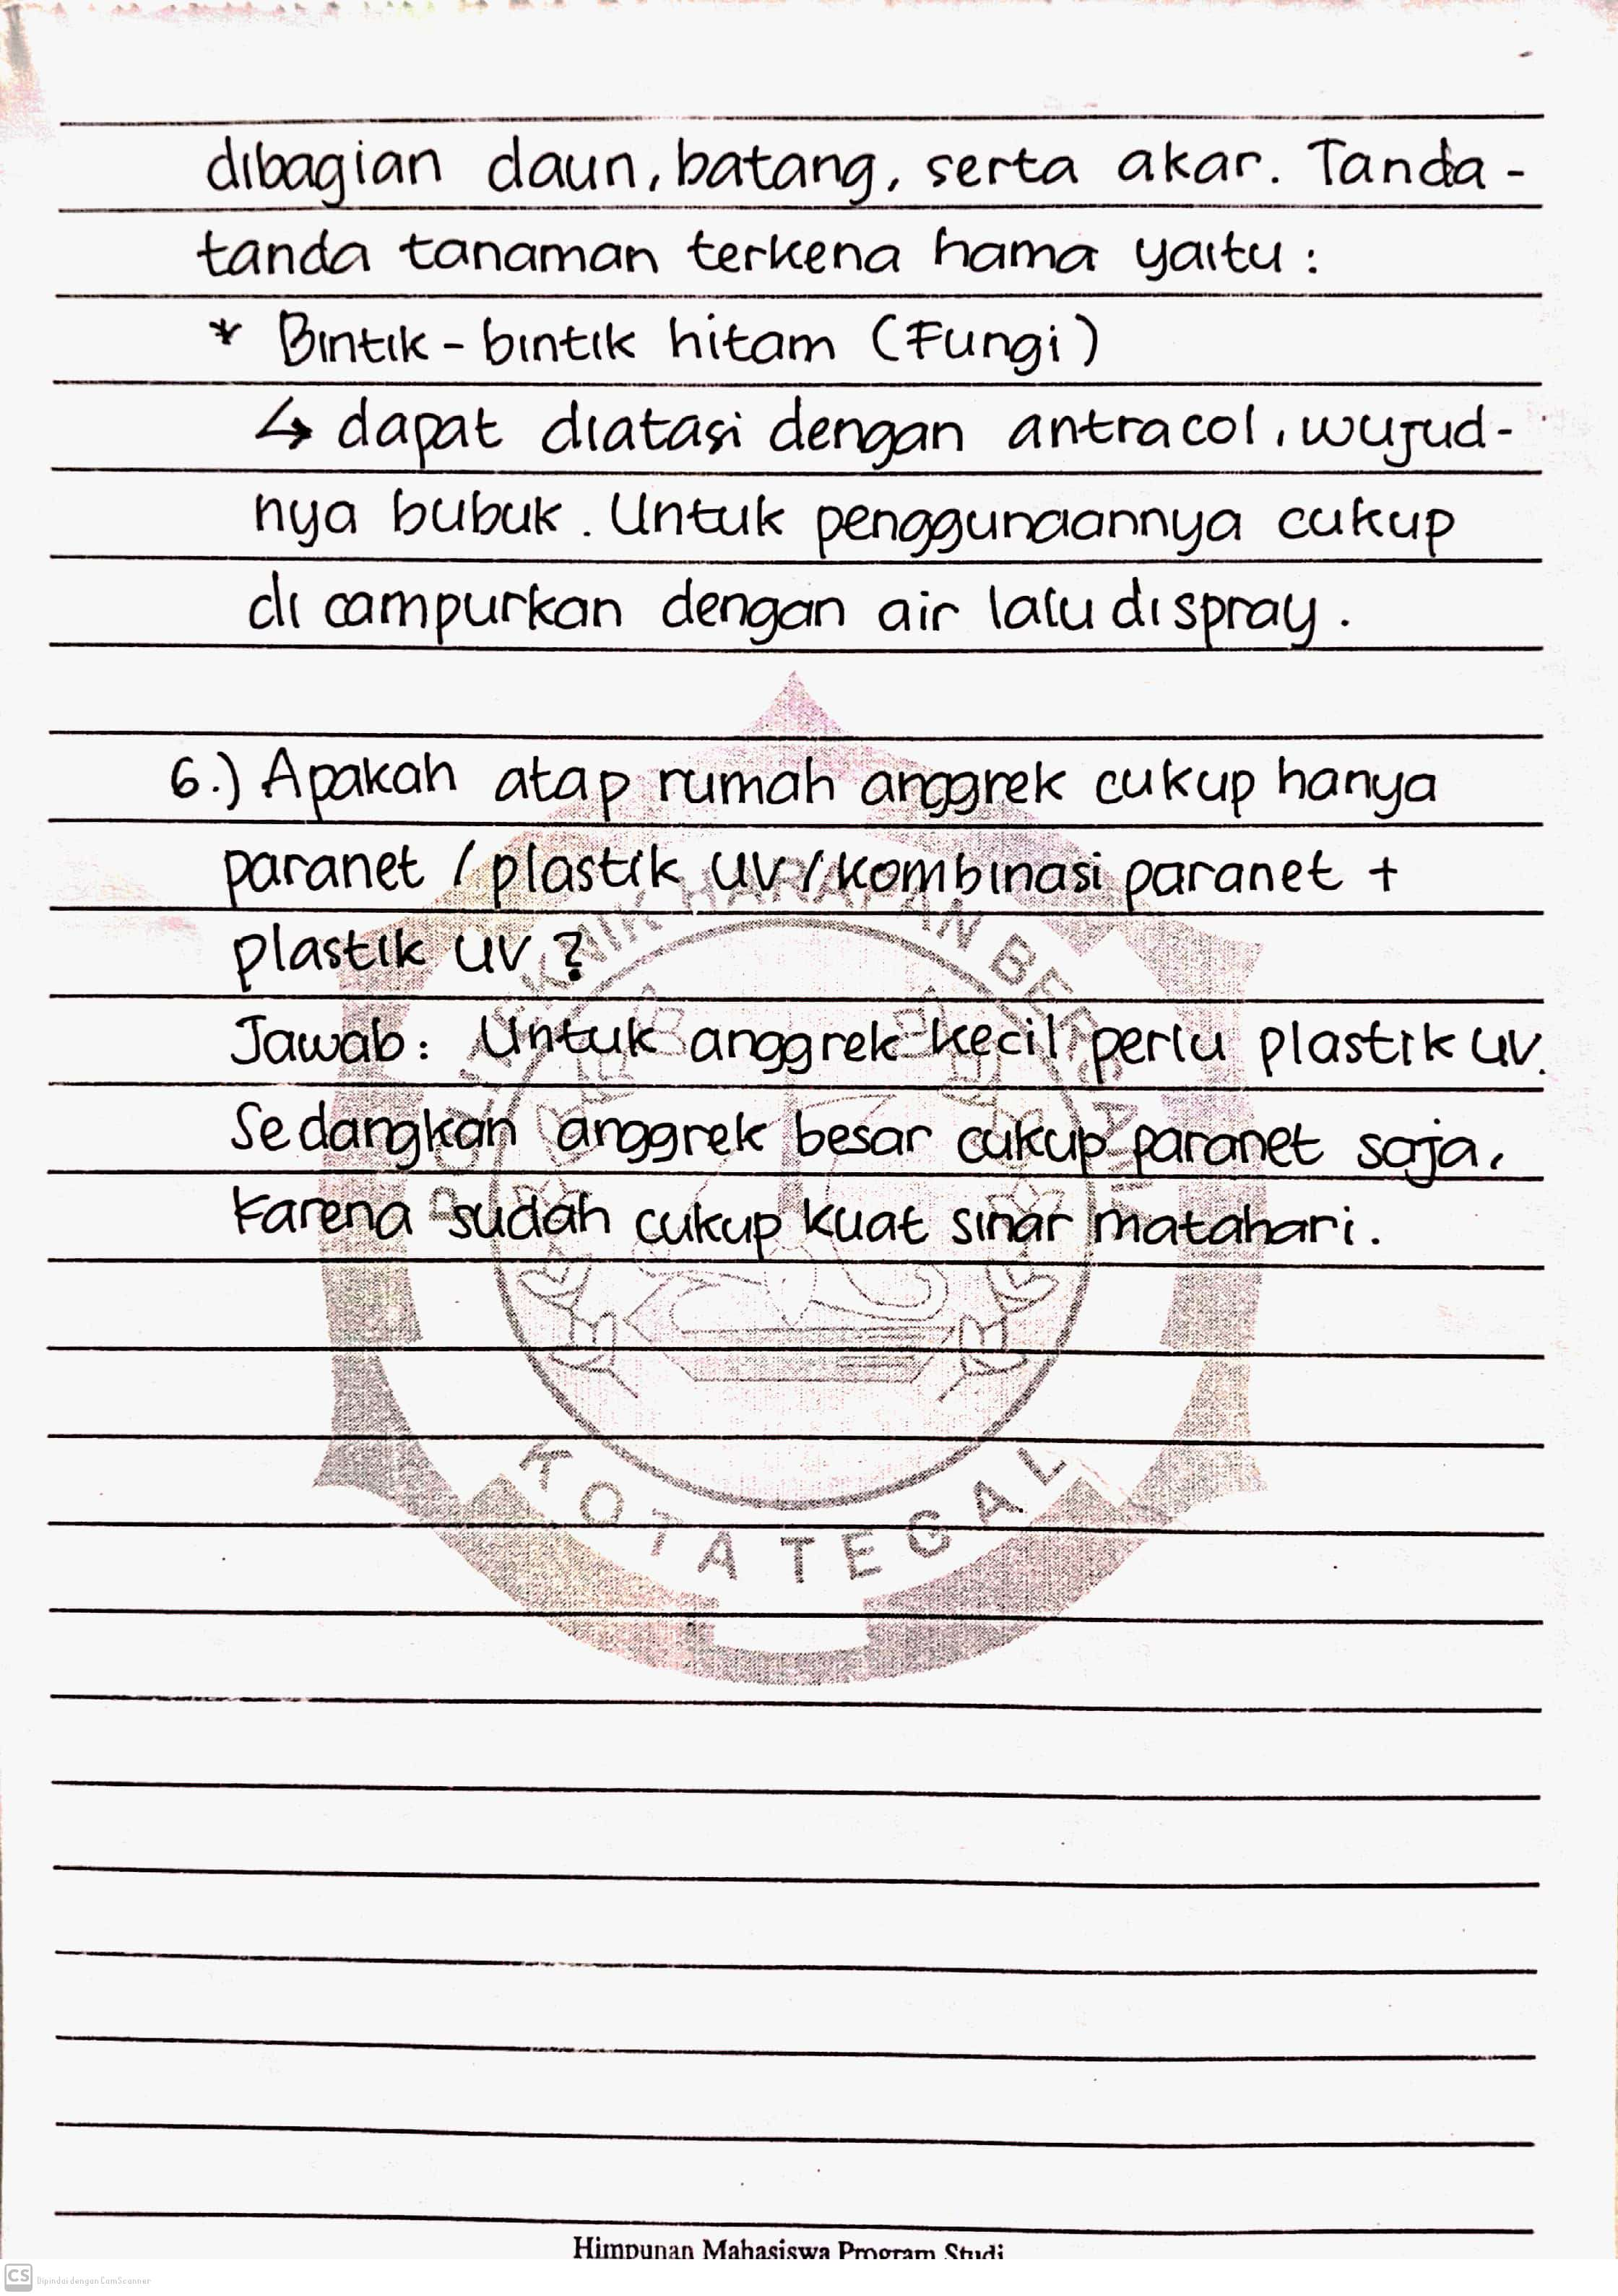 dibagian daun, batang, serta akar. Tanda-
tanda tanaman terkena hama yaitu :
* Bintik - bintik hitam (Fungi)
↳ dapat diatasi dengan antracol, wujud-
nya bubuk. Untuk penggunaannya cukup
di campurkan dengan air lalu di spray.
6.) Apakah atap rumah anggrek cukup hanya
paranet / plastik UV / kombinasi paranet +
plastik UV ?
Jawab : Untuk anggrek kecil perlu plastik UV.
Sedangkan anggrek besar cukup paranet saja,
Karena sudah cukup kuat sinar matahari.
KOTA TEGAL
Himpunan Mahasiswa Program Studi
CS Dipindai dengan CamScanner